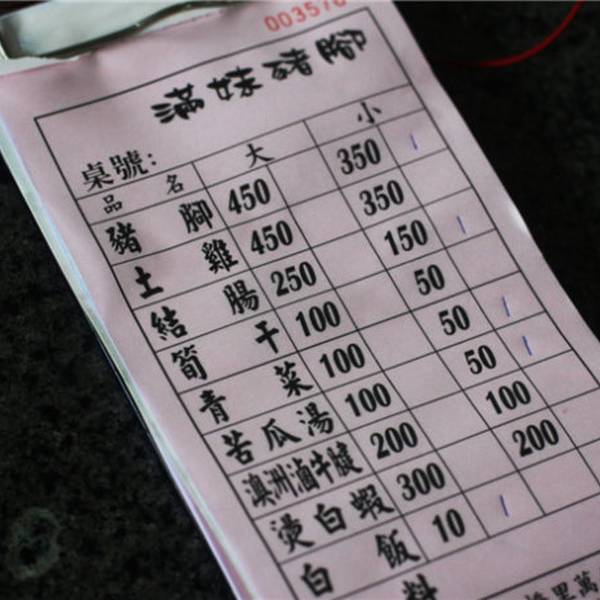 滿妹豬腳
桌號:
品名 大 小
豬腳 450 350 1
土雞 450 350
結腸 250 150 1
筍干 100 50
青菜 100 50 1
苦瓜湯 100 50 1
澳洲滷牛腱 200 100
燙白蝦 300 200
白飯 10 1
料
里萬